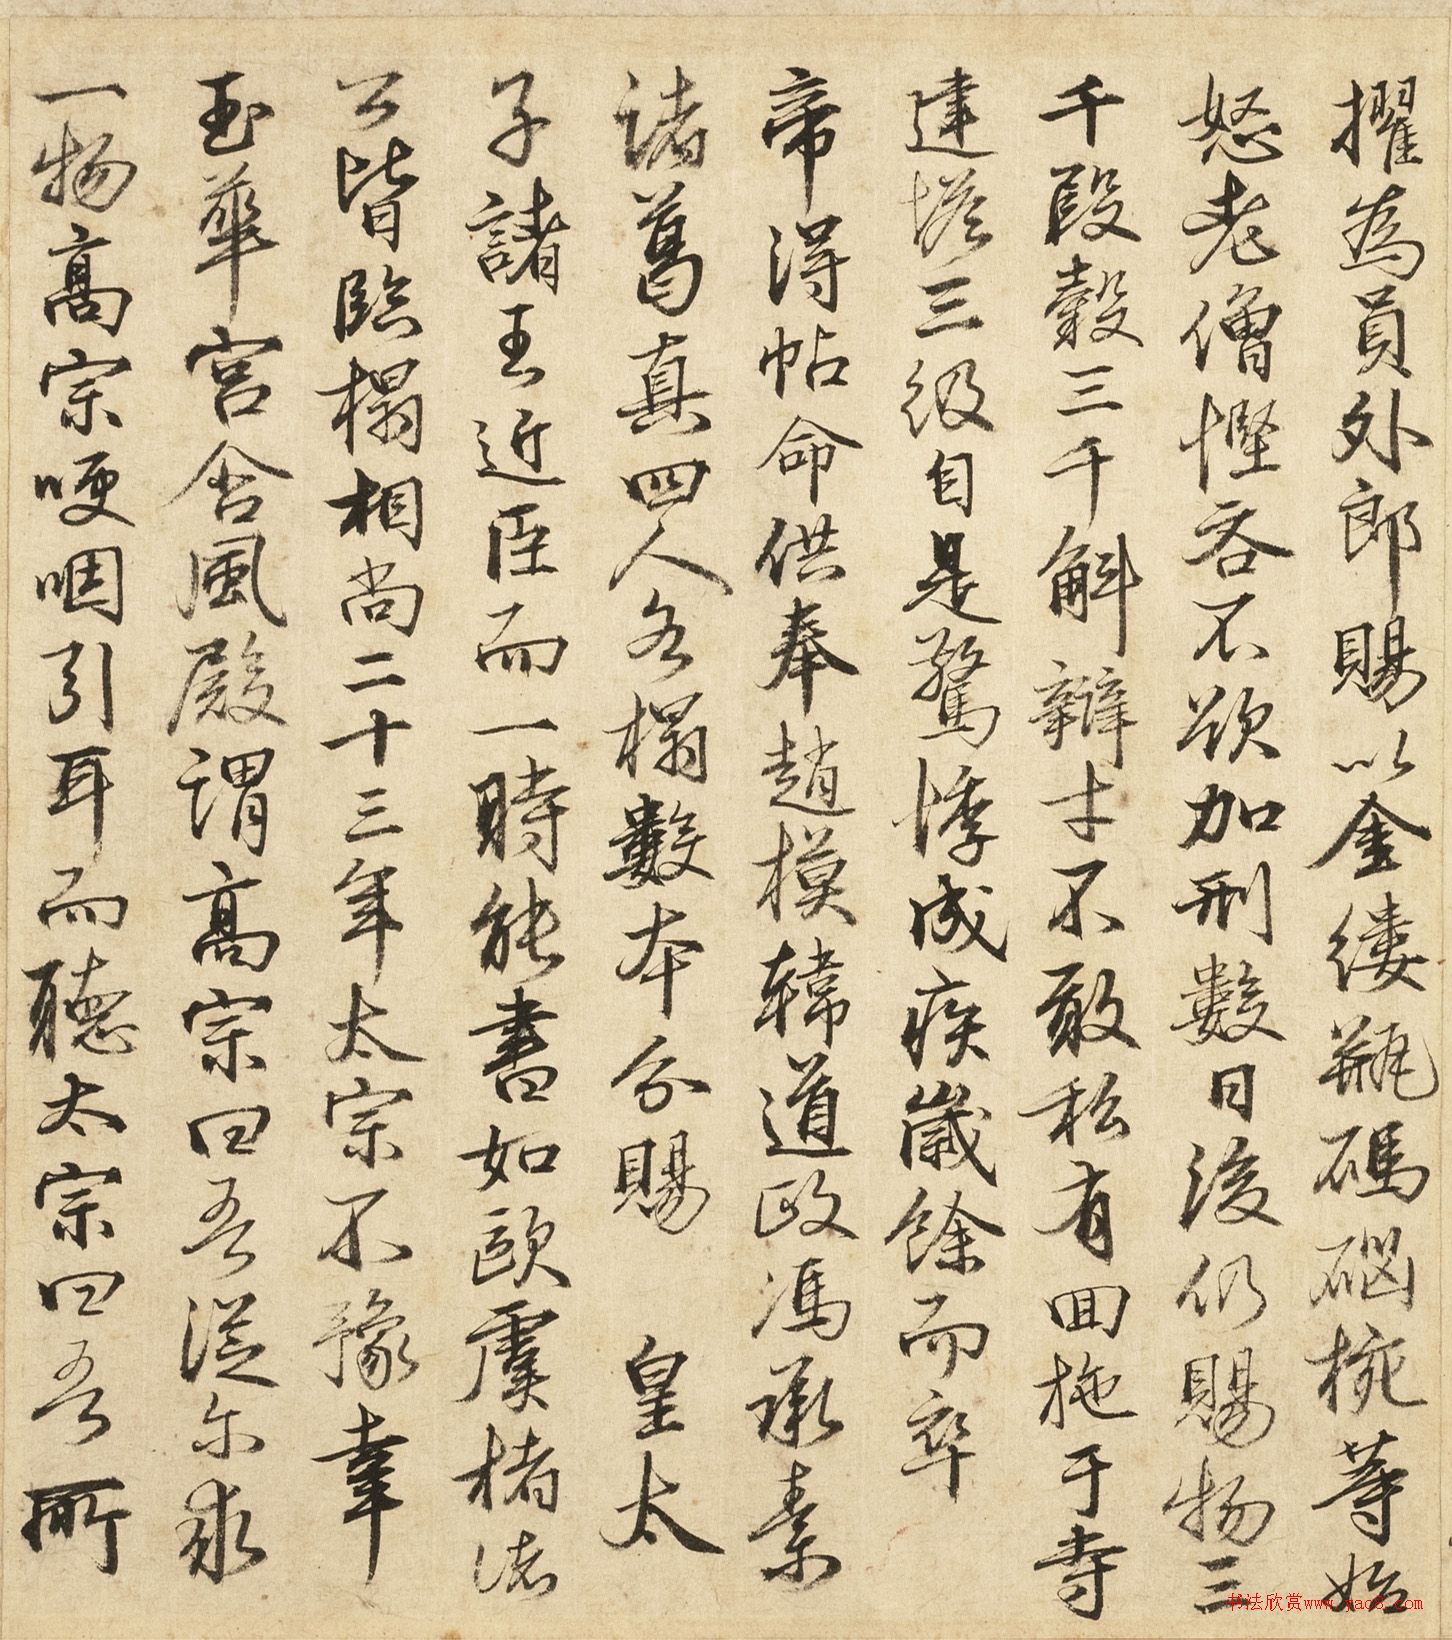 擢為員外郎賜以金縷瓶碼碯椀等始
怒老僧慳吝不欲加刑數日後仍賜物三
千段穀三千斛辯才不敢私有回施于寺
建塔三級自是驚悸成疾歲餘而卒
帝得帖命供奉趙模韓道政馮承素
諸葛真四人各榻數本分賜　皇太
子諸王近臣而一時能書如歐虞褚諸
公皆臨榻相尚二十三年太宗不豫幸
玉華宮含風殿謂高宗曰吾從尔求
一物高宗哽咽引耳而聽太宗曰吾所
书法欣赏www.yac8.com